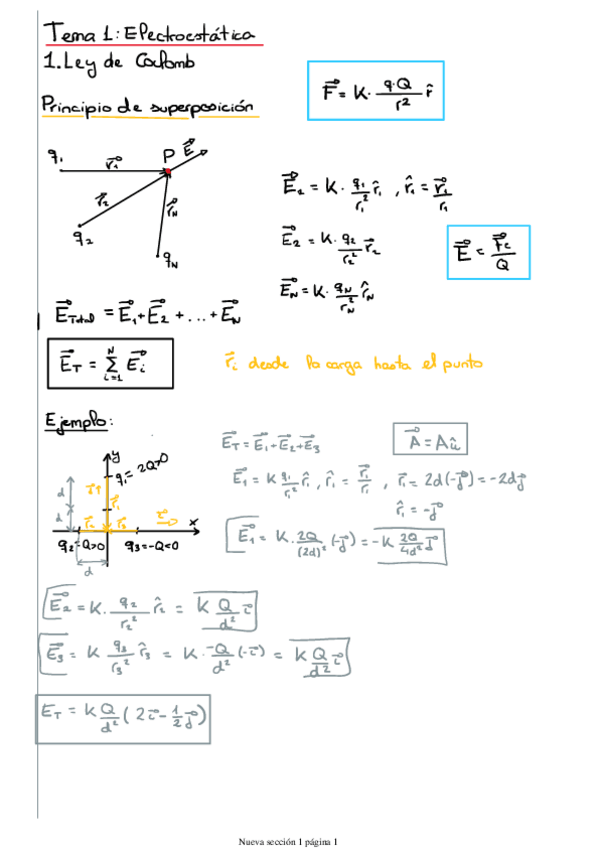 Tema 1: Electroestática
1. Ley de Coulomb
F⃗ = K · q·Q/r² r̂
Principio de superposición
q₁ r⃗₁ P E⃗
r⃗₂ r⃗N
q₂
qN
E⃗₂ = K · q₁/r₁² r̂₁ , r̂₁ = r⃗₁/r₁
E⃗₂ = K · q₂/r₂² r⃗₂
E⃗ = F⃗c/Q
E⃗N = K · qN/rN² r̂N
E⃗Total = E⃗₁ + E⃗₂ + ... + E⃗N
E⃗T = Σ E⃗i
N
i=1
r⃗i desde la carga hasta el punto
Ejemplo:
E⃗T = E⃗₁ + E⃗₂ + E⃗₃
A⃗ = Aû
y
q₁ = 2Q>0
d
d
r⃗₁
r⃗₂ r⃗₃
x
q₂ = Q>0 q₃ = -Q<0
d
E⃗₁ = K q₁/r₁² r̂₁ , r̂₁ = r⃗₁/r₁ , r⃗₁ = 2d(-j⃗) = -2dj⃗
r̂₁ = -j⃗
E⃗₁ = K · 2Q/(2d)² (-j⃗) = -K 2Q/4d² j⃗
E⃗₂ = K · q₂/r₂² r̂₂ = K Q/d² i⃗
E⃗₃ = K q₃/r₃² r̂₃ = K · -Q/d² (-i⃗) = K Q/d² i⃗
ET = K Q/d² (2i⃗ - 1/2 j⃗)
Nueva sección 1 página 1